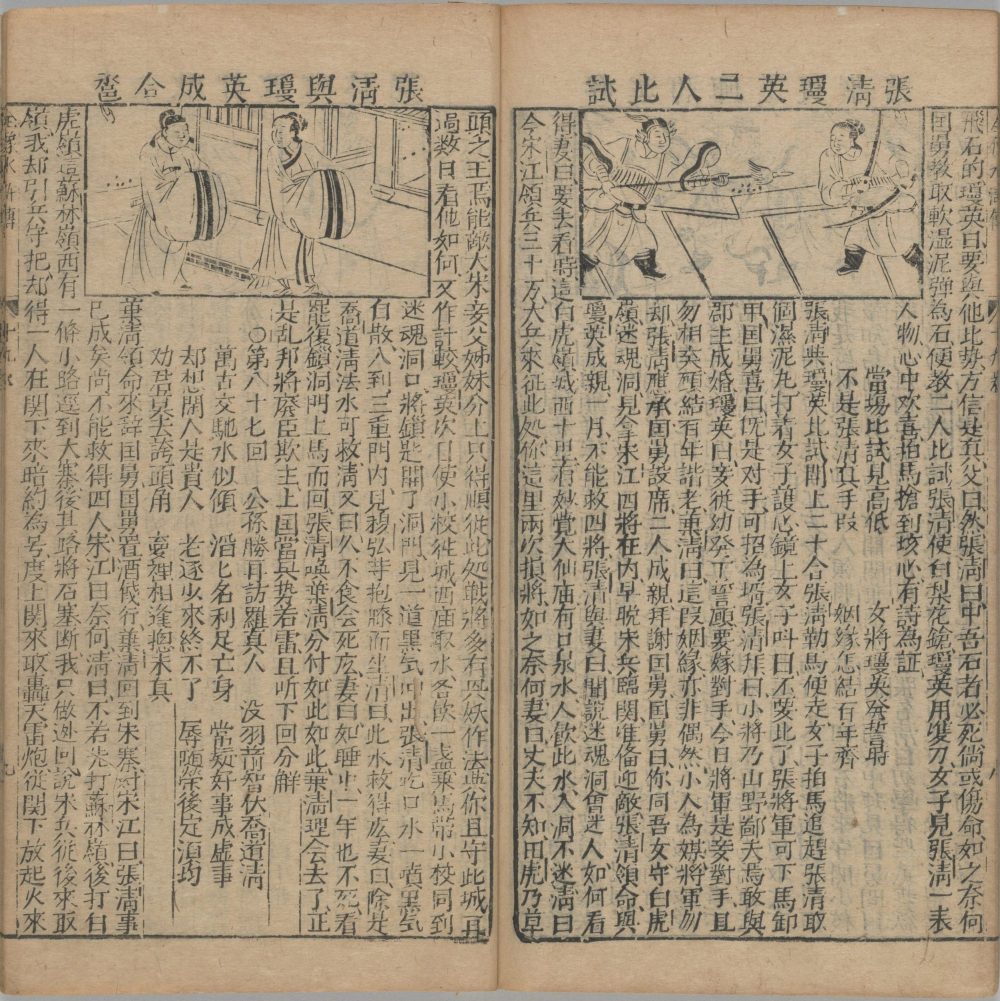 張清瓊英二人比試
飛石的瓊英曰要與他比势方信是真父曰然張清曰中吾石者必死倘或傷命如之奈何
国舅教取軟湿泥弹為石便教二人比試張清使白梨花鎗瓊英用雙刀女子見張清一表
人物心中欢喜拍馬搶到垓心有詩為証
當場比試見高低　女將瓊英発誓時
不是張清真手段　姻緣怎結有年齊
張清與瓊英比試閗上二十合張清勒馬便走女子拍馬追趕張清取
個濕泥丸打着女子護心鏡上女子叫曰不要比了張將軍可下馬卸
甲国舅喜曰既是对手可招為壻張清拜曰小將乃山野鄙夫焉敢與
郡主成婚瓊英曰妾從幼発下誓願要嫁對手今日將軍是妾對手且
勿相矣願結有年諧老葉清曰這叚姻緣亦非偶然小人為媒將軍勿
却張清應承国舅設席二人成親拜謝国舅国舅曰你同吾女守白虎
嶺迷魂洞見拿宋江四將在內早晚宋兵臨関准俻迎敵張清領命與
瓊英成親一月不能救四將張清與妻曰聞說迷魂洞會迷人如何看
得妻曰要去看時這白虎嶺城西十里有妙覚大仙庙有口泉水人飲此水入洞不迷清曰
今宋江領兵三十万大兵來征此処你這里兩次損將如之奈何妻曰丈夫不知田虎乃草
張清與瓊英成合巹
頭之王焉能敵大宋妾父姊妹分上只得順從此処戰將多有妖作法與你且守此城再
過数日看他如何又作計較瓊英次日使小校徃城西庙取水各飲一盏乘馬帶小校同到
迷魂洞口將鎖匙開了洞門見一道黒気冲出張清吃口水一噴黒気
自散入到三重門內見禎弘等抱膝而坐清曰此水救得庅妻曰除是
喬道清法水可救清又曰久不食会死庅妻曰如睡中一年也不死看
罷復鎖洞門上馬而回張清喚葉清分付如此如此葉清理会去了正
是乱邦將廢臣欺主上国當興势若雷且听下回分解
○第八十七回　公孫勝再訪羅真人　没羽箭智伏喬道清
萬古交馳水似傾　滔匕名利足亡身　當疑好事成虛事
却和閑人是貴人　老逐少來終不了　辱隨榮後定湏均
劝君莫誇頭角　夢裡相逢揔未真
葉清領命來辞国舅国舅看酒餞行葉清回到宋寨对宋江曰張清事
已成矣尚不能救得四人宋江曰奈何清曰不若先打蘇林嶺後打白
虎嶺這蘇林嶺西有一條小路逕到大寨後其路將石塞断我只做迯回說宋兵從後來取
嶺我却引兵守把却得一人在関下來暗約為号度上関來取轟天雷炮從関下放起火來